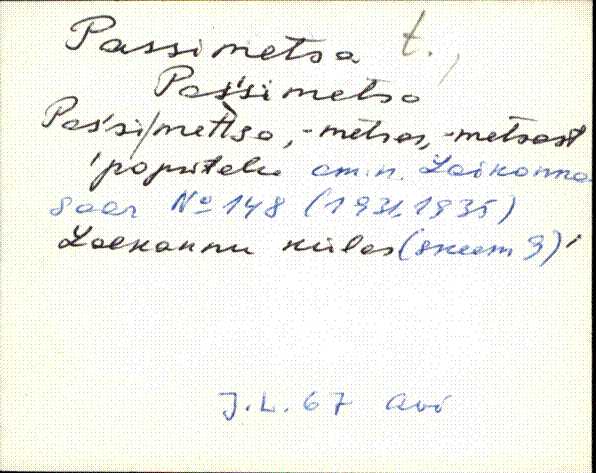 Passimetsa t.,
Paśsimetsa
Paśsi/metsa, -metsas, -metsast
'popsitalu am.n. Laekannu
saar No 148 (1931, 1935)
Laekannu külas (skeem 9)'
J.L. 67 Avi